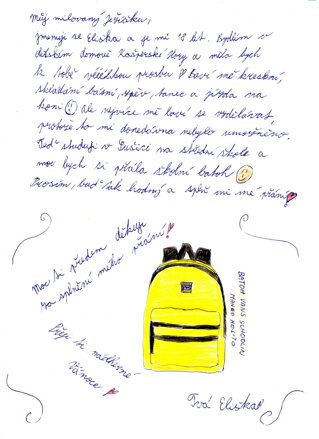 Můj milovaný Ježíšku,
jmenuji se Eliška a je mi 18 let. Bydlím v
dětském domově Kašperské Hory a měla bych
k Tobě velikou prosbu Baví mě kreslení,
skládání básní, zpěv, tanec a jízda na
koni Ale nejvíce mě baví se vzdělávat,
protože to mi donedávna nebylo umožněno.
Teď studuji v Sušici na střední škole a
moc bych si přála školní batoh
Prosím, buď tak hodný a splň mi mé přání!
Moc Ti předem děkuji
za splnění mého přání!
Přeji Ti nádherné
Vánoce
BATOH VANS SCHOOLIN
MANGO MOJITO
Tvá Eliška